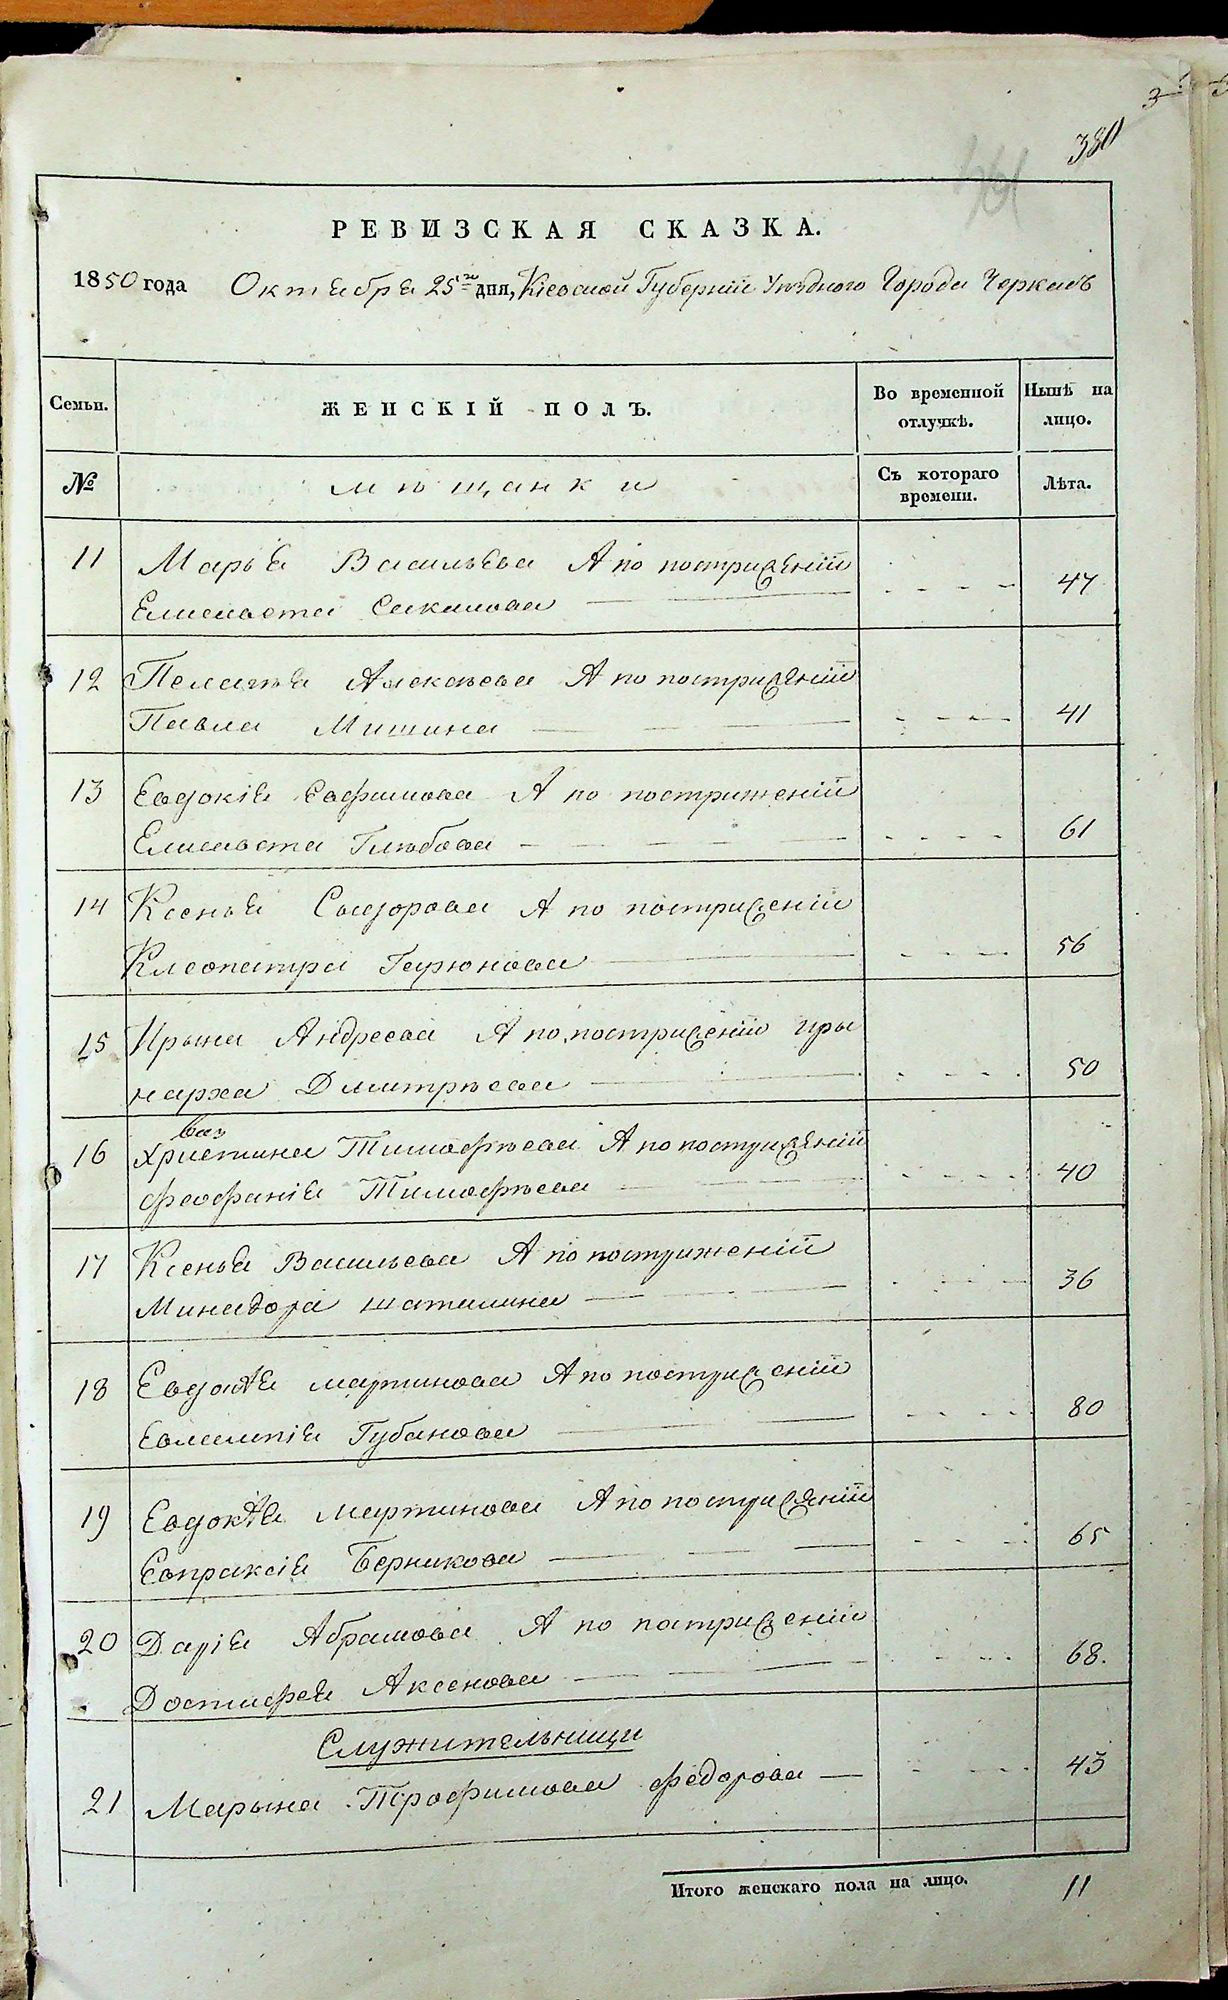 380
РЕВИЗСКАЯ СКАЗКА.
1850 года Октября 25го дня, Кіевской Губерніи Уѣздного Города Черкасъ
Семьи.
ЖЕНСКІЙ ПОЛЪ.
Во временной отлучкѣ.
Нынѣ на лицо.
№
мѣщанки
Съ котораго времени.
Лѣта.
11 Марья Васильева А по постриженіи
Елисавета Сакалова 47
12 Пелагѣя Алексѣева А по постриженіи
Павла Мишина 41
13 Евдокія Евфимова А по постриженіи
Елисавета Глѣбова 61
14 Ксенья Сидорова А по постриженіи
Клеопатра Горюнова 56
15 Ирына Андреева А по постриженіи Иры
нарха Дмитрѣева 50
16 Христина Тимофѣева А по постриженіи
Феофанія Тимофѣева 40
17 Ксенья Васильева А по постриженіи
Минадора шаталина 36
18 Мартинова А по постриженіи
Евлампія Губанова 80
19 Мартинова А по постриженіи
Евпраксія Берникова 65
20 Дарія Абрамова А по постриженіи
Досифея Аксенова 68.
Служительницы
21 Марына Трофимова Федорова 43
Итого женскаго пола на лицо. 11